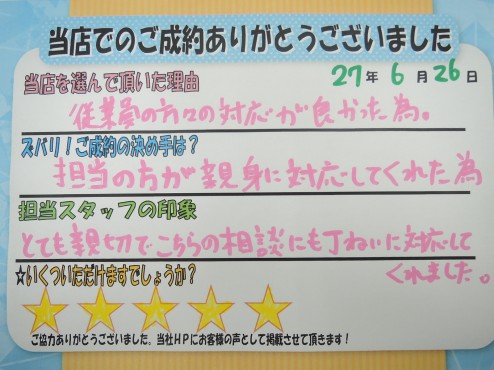 当店でのご成約ありがとうございました
当店を選んで頂いた理由
27年6月26日
従業員の方々の対応が良かった為。
ズバリ!ご成約の決め手は?
担当の方が親身に対応してくれた為
担当スタッフの印象
とても親切でこちらの相談にも丁ねいに対応して
くれました。
☆いくついただけますでしょうか?
ご協力ありがとうございました。当社HPにお客様の声として掲載させて頂きます!